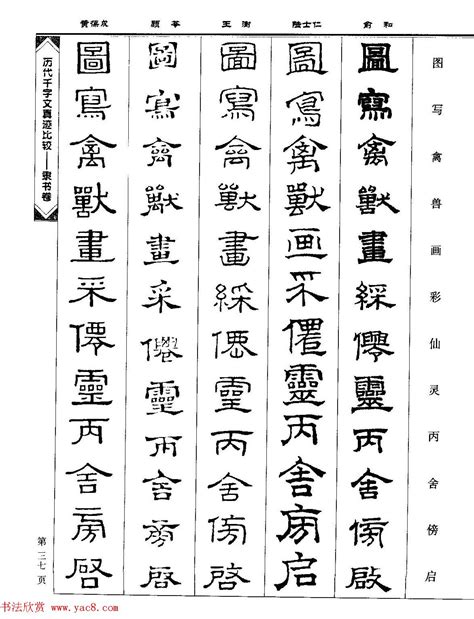 黄葆戉 顾苓 王澍 陆士仁 俞和
图写禽兽画彩仙灵丙舍傍启
圖寫禽獸畫綵僊靈丙舍傍啟
圖寫禽獸画采僊靈丙舍旁启
圖寫禽獸畫綵僊靈丙舍傍啓
圖寫禽獸畫采僊靈丙舍旁啓
圖寫禽獸畫采僊靈丙舍旁啓
历代千字文真迹比较——隶书卷
第三七页
书法欣赏 www.yac8.com